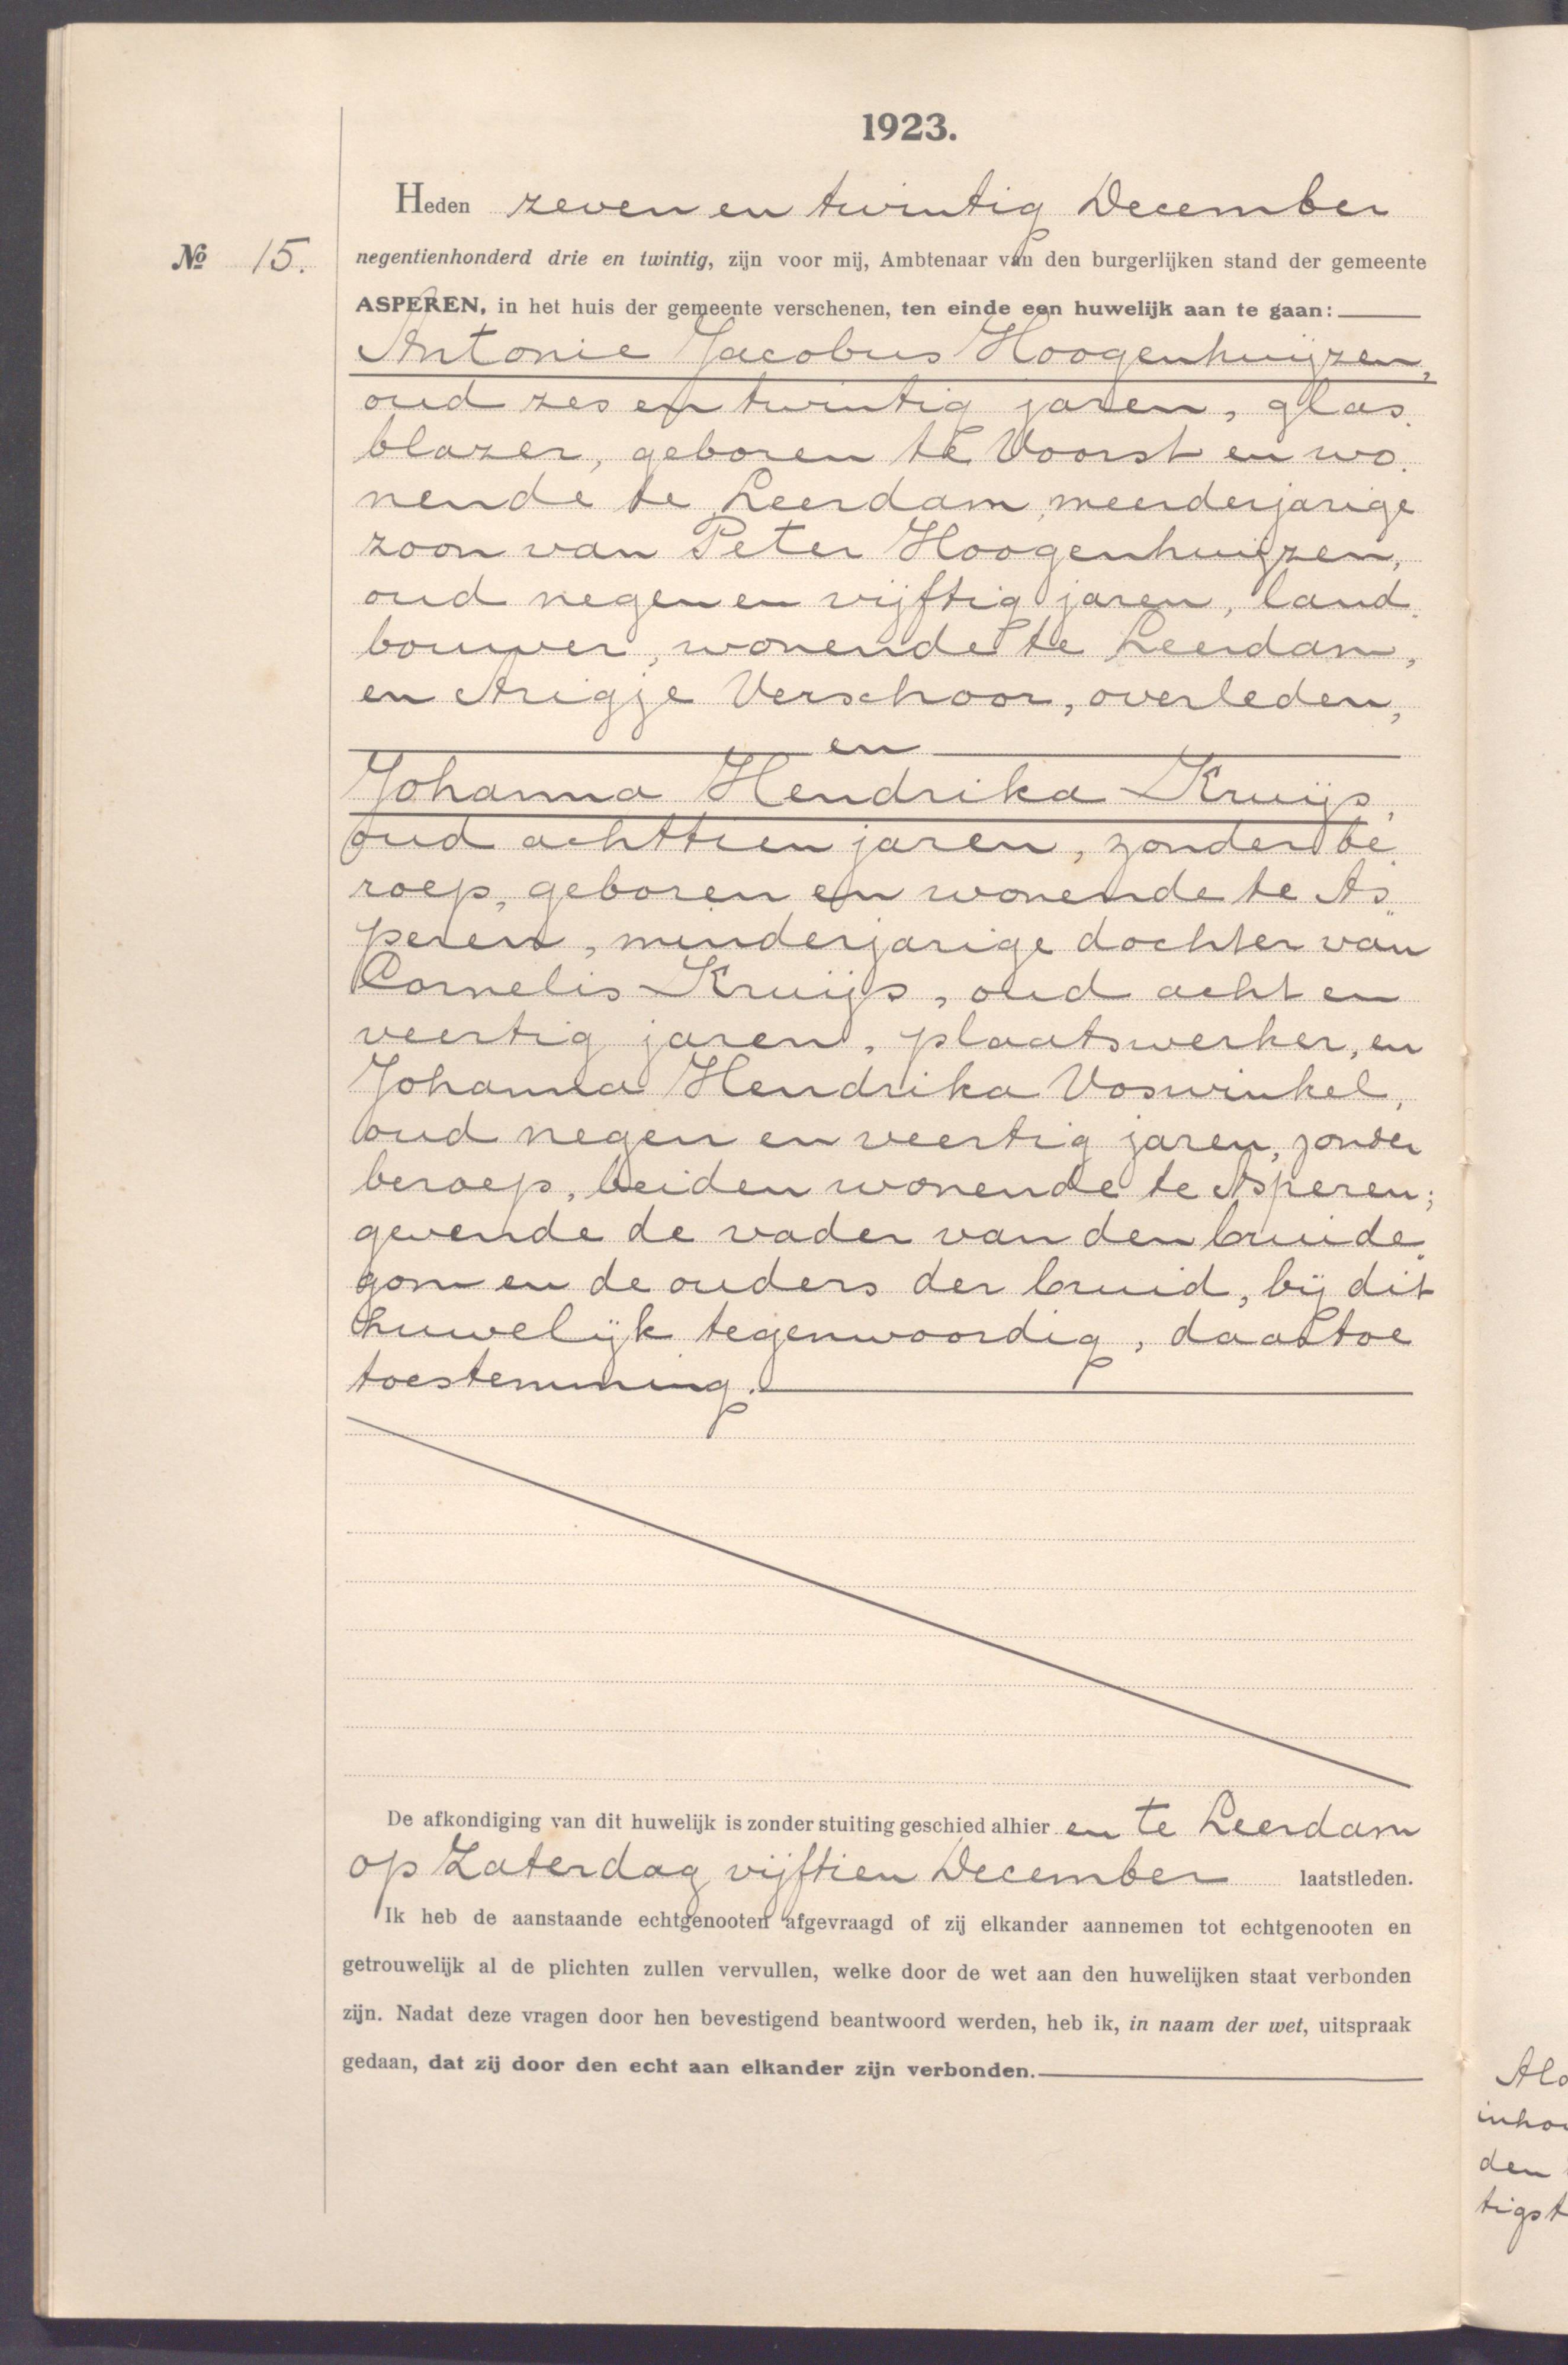 1923.
Heden zeven en twintig December
№ 15.
negentienhonderd drie en twintig, zijn voor mij, Ambtenaar van den burgerlijken stand der gemeente
ASPEREN, in het huis der gemeente verschenen, ten einde een huwelijk aan te gaan:
Antonie Jacobus Hoogenhuijzen,
oud zes en twintig jaren, glas-
blazer, geboren te Voorst en wo-
nende te Leerdam, meerderjarige
zoon van Peter Hoogenhuijzen,
oud negen en vijftig jaren, land-
bouwer, wonende te Leerdam,
en Arigje Verschoor, overleden,
en
Johanna Hendrika Kruijs,
oud achttien jaren, zonder be-
roep, geboren en wonende te As-
peren, minderjarige dochter van
Cornelis Kruijs, oud acht en
veertig jaren, plaatswerker, en
Johanna Hendrika Voswinkel,
oud negen en veertig jaren, zonder
beroep, beiden wonende te Asperen;
gevende de vader van den bruide-
gom en de ouders der bruid, bij dit
huwelijk tegenwoordig, daartoe
toestemming.
De afkondiging van dit huwelijk is zonder stuiting geschied alhier en te Leerdam
op Zaterdag vijftien December laatstleden.
Ik heb de aanstaande echtgenooten afgevraagd of zij elkander aannemen tot echtgenooten en
getrouwelijk al de plichten zullen vervullen, welke door de wet aan den huwelijken staat verbonden
zijn. Nadat deze vragen door hen bevestigend beantwoord werden, heb ik, in naam der wet, uitspraak
gedaan, dat zij door den echt aan elkander zijn verbonden.
den